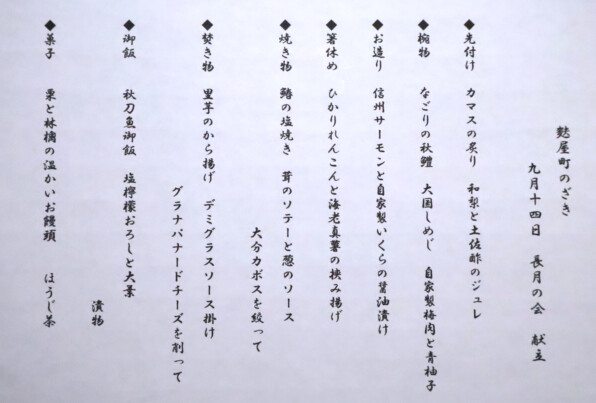 麩屋町のざき
九月十四日 長月の会 献立
◆先付け カマスの炙り 和梨と土佐酢のジュレ
◆椀物 なごりの秋鱧 大国しめじ 自家製梅肉と青柚子
◆お造り 信州サーモンと自家製いくらの醤油漬け
◆箸休め ひかりれんこんと海老真薯の挟み揚げ
◆焼き物 鰆の塩焼き 茸のソテーと葱のソース
大分カボスを絞って
◆焚き物 里芋のから揚げ デミグラスソース掛け
グラナパナードチーズを削って
◆御飯 秋刀魚御飯 塩檸檬おろしと大葉
漬物
◆菓子 栗と林檎の温かいお饅頭 ほうじ茶